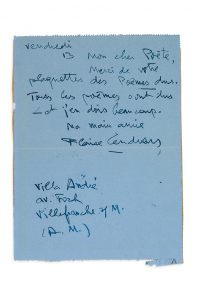 vendredi
13 Mon cher Poète,
Merci de votre
plaquettes des Poèmes durs.
Tous les poèmes sont durs
et j'en dois beaucoup.
Ma main amie
Blaise Cendrars
Villa André
av. Foch
Villefranche s/M.
(A.M.)